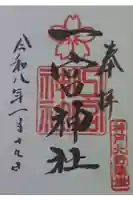 奉拝
一宮神社
令和八年一月十九日